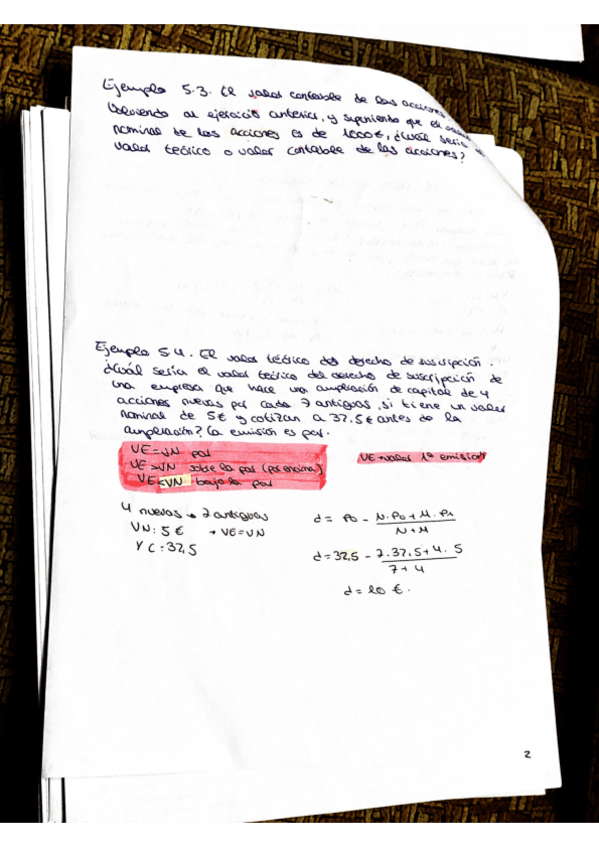 Ejemplo 5.3. El valor contable de las acciones
Volviendo al ejercicio anterior, y suponiendo que el valor
nominal de las acciones es de 1000€, ¿cuál sería
valor teórico o valor contable de las acciones?
Ejemplo 5.4. El valor teórico del derecho de suscripción.
¿Cuál sería el valor teórico del derecho de suscripción de
una empresa que hace una ampliación de capital de 4
acciones nuevas por cada 7 antiguas, si tiene un valor
nominal de 5€ y cotizan a 37.5€ antes de la
ampliación? La emisión es par.
VE=VN par
VE>VN sobre la par (por encima)
VE<VN bajo la par
VE→valor 1ª emisión
4 nuevas → 7 antiguas
VN: 5 €  → VE=VN
VC: 37,5
d = P0 - N.P0 + M.P1 / N+M
d = 37,5 - 7.37,5+4.5 / 7+4
d = 10 €.
2